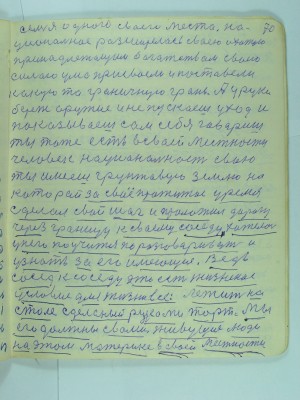 70
семя одного своего места, на-
циональное размещается свою охотою
принадлежащим богатством своею
силою ума присвоим и поставели
какую то граничную грань. А у рука
берет оружие и не пускаеш уход и
показываеш сам себя гаварищ
ты тоже есть в своей местности
человек национальност свою
ты имееш грунтовую землю на
которай за своё прожитое уремя
сделал свой шаг и проложил дарогу
через границу к своему соседу, хател
у него поучится поразговаривать и
узнать за его имеющия. Ведь
сосед к соседу это ест жизненое
условие для жизни все: лежит на
столе сделеный руками торт. Мы
его должны своими живущие люди
на этом материке в своей местности